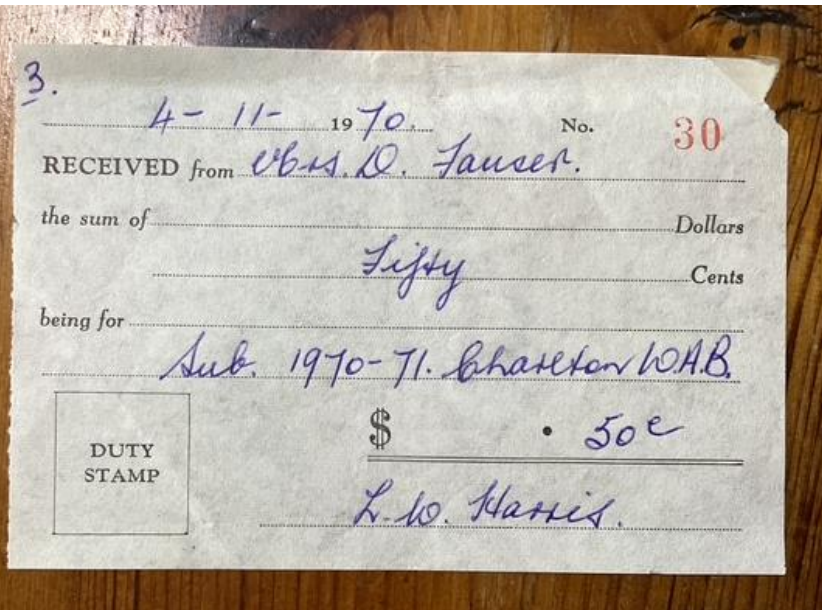 3.
4- 11- 1970. No. 30
RECEIVED from Mrs. D. Fauser.
the sum of Dollars
Fifty Cents
being for
Sub. 1970-71. Charlton W.A.B.
$ . 50c
DUTY
STAMP
L.W. Harris.